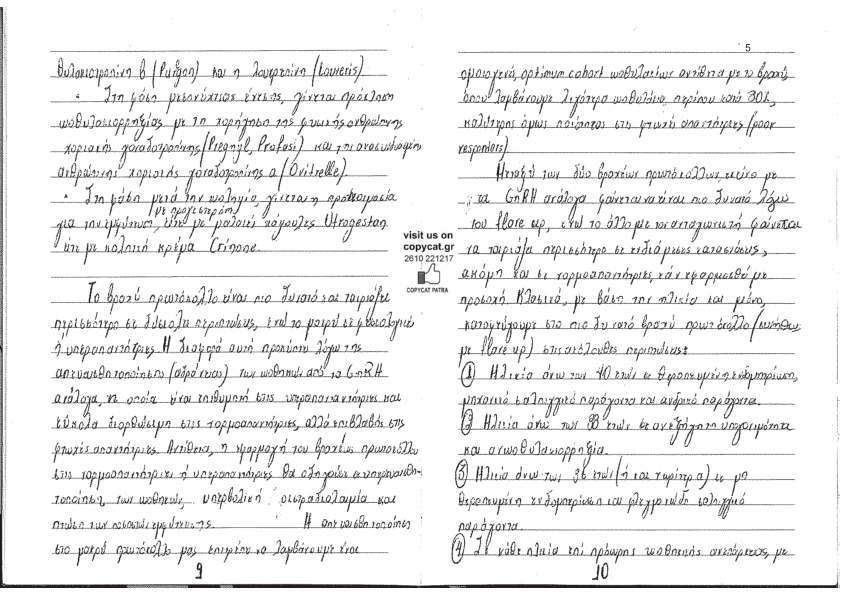 θυλακιοτροπίνη β (Puregon) και η λουτροπίνη (Louveris)
• Στη φάση μεσοκύκλιας ένεσης, γίνεται πρόκληση
ωοθυλακιορρηξίας με τη χορήγηση της φυσικής ανθρώπινης
χοριακής γοναδοτροπίνης (Pregnyl, Profasi) και της ανασυνδυασμένης
ανθρώπινης χοριακής γοναδοτροπίνης α (Ovitrelle).
• Στη φάση μετά την ωοληψία, γίνεται η προετοιμασία
με προγεστερόνη
για την εμφύτευση, είτε με μαλακές κάψουλες Utrogestan
είτε με κολπική κρέμα Crinone.
Το βραχύ πρωτόκολλο είναι πιο δυνατό και ταιριάζει
περισσότερο σε δύσκολες περιπτώσεις, ενώ το μακρύ σε φυσιολογικές
ή υπεραπαντήτριες. Η διαφορά αυτή προκύπτει λόγω της
απευαισθητοποίησης (αδράνειας) των ωοθηκών από τα GnRH
ανάλογα, η οποία είναι επιθυμητή στις υπεραπαντήτριες και
εύκολα διορθώσιμη στις νορμοαπαντήτριες, αλλά επιβλαβής στις
φτωχές απαντήτριες. Αντίθετα, η εφαρμογή του βραχέως πρωτοκόλλου
στις νορμοαπαντήτριες ή υπεραπαντήτριες θα οδηγούσε σε υπερευαισθη-
τοποίηση των ωοθηκών, υπερβολική οιστραδιολαιμία και
πτώση των ποσοστών εμφύτευσης. Η απευαισθητοποίηση
στο μακρύ πρωτόκολλο μας επιτρέπει να λαμβάνουμε ένα
9
5
ομοιογενές, optimum cohort ωοθυλακίων αντίθετα με το βραχύ,
όπου λαμβάνουμε λιγότερα ωοθυλάκια, περίπου κατά 30%,
καλύτερης όμως ποιότητας στις φτωχές απαντήτριες (poor
responders).
Μεταξύ των δύο βραχέων πρωτοκόλλων, εκείνο με
τα GnRH ανάλογα φαίνεται να είναι πιο δυνατό λόγω
του flare up, ενώ το άλλο με τον ανταγωνιστή φαίνεται
να ταιριάζει περισσότερο σε ενδιάμεσες καταστάσεις,
ακόμη και σε νορμοαπαντήτριες, εάν εφαρμοσθεί με
προσοχή. Κλασικά, με βάση την ηλικία και μόνο,
καταφεύγουμε στο πιο δυνατό βραχύ πρωτόκολλο (συνήθως
με flare up) στις ακόλουθες περιπτώσεις:
① Ηλικία άνω των 40 ετών σε θεραπευμένη ενδομητρίωση,
μηχανικό σαλπιγγικό παράγοντα και ανδρικό παράγοντα.
② Ηλικία άνω των 38 ετών σε ανεξήγητη υπογονιμότητα
και ανωοθυλακιορρηξία.
③ Ηλικία άνω των 36 ετών (ή και νωρίτερα) σε μη
θεραπευμένη ενδομητρίωση και φλεγμονώδη σαλπιγγικό
παράγοντα.
④ Σε κάθε ηλικία επί πρόωρης ωοθηκικής ανεπάρκειας, με
10
visit us on
copycat.gr
2610 221217
COPYCAT PATRA